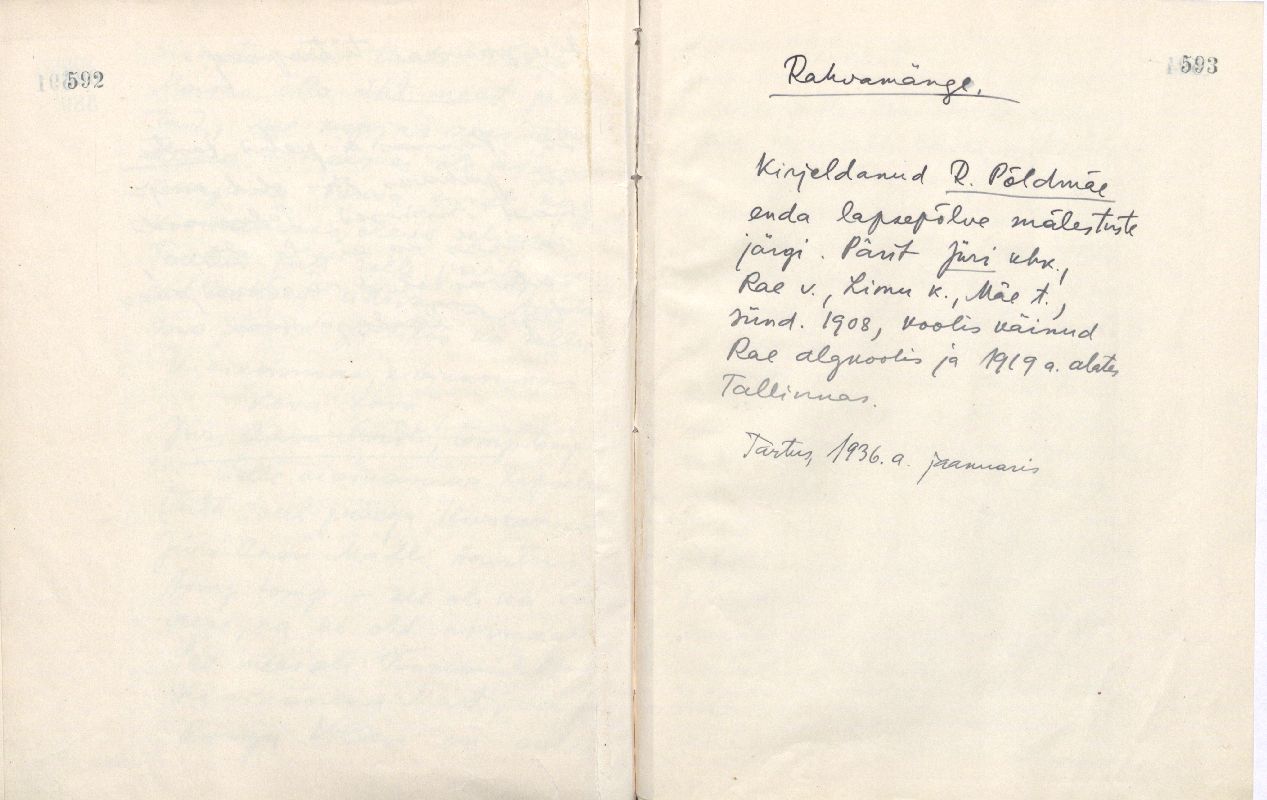 592
593
Rahvamänge.
Kirjeldanud R. Põldmäe
enda lapsepõlve mälestuste
järgi. Pärit Jüri khk.,
Rae v., Limu k., Mäe t.,
sünd. 1908, koolis käinud
Rae algkoolis ja 1919 a. alates
Tallinnas.
Tartus, 1936. a. jaanuaris